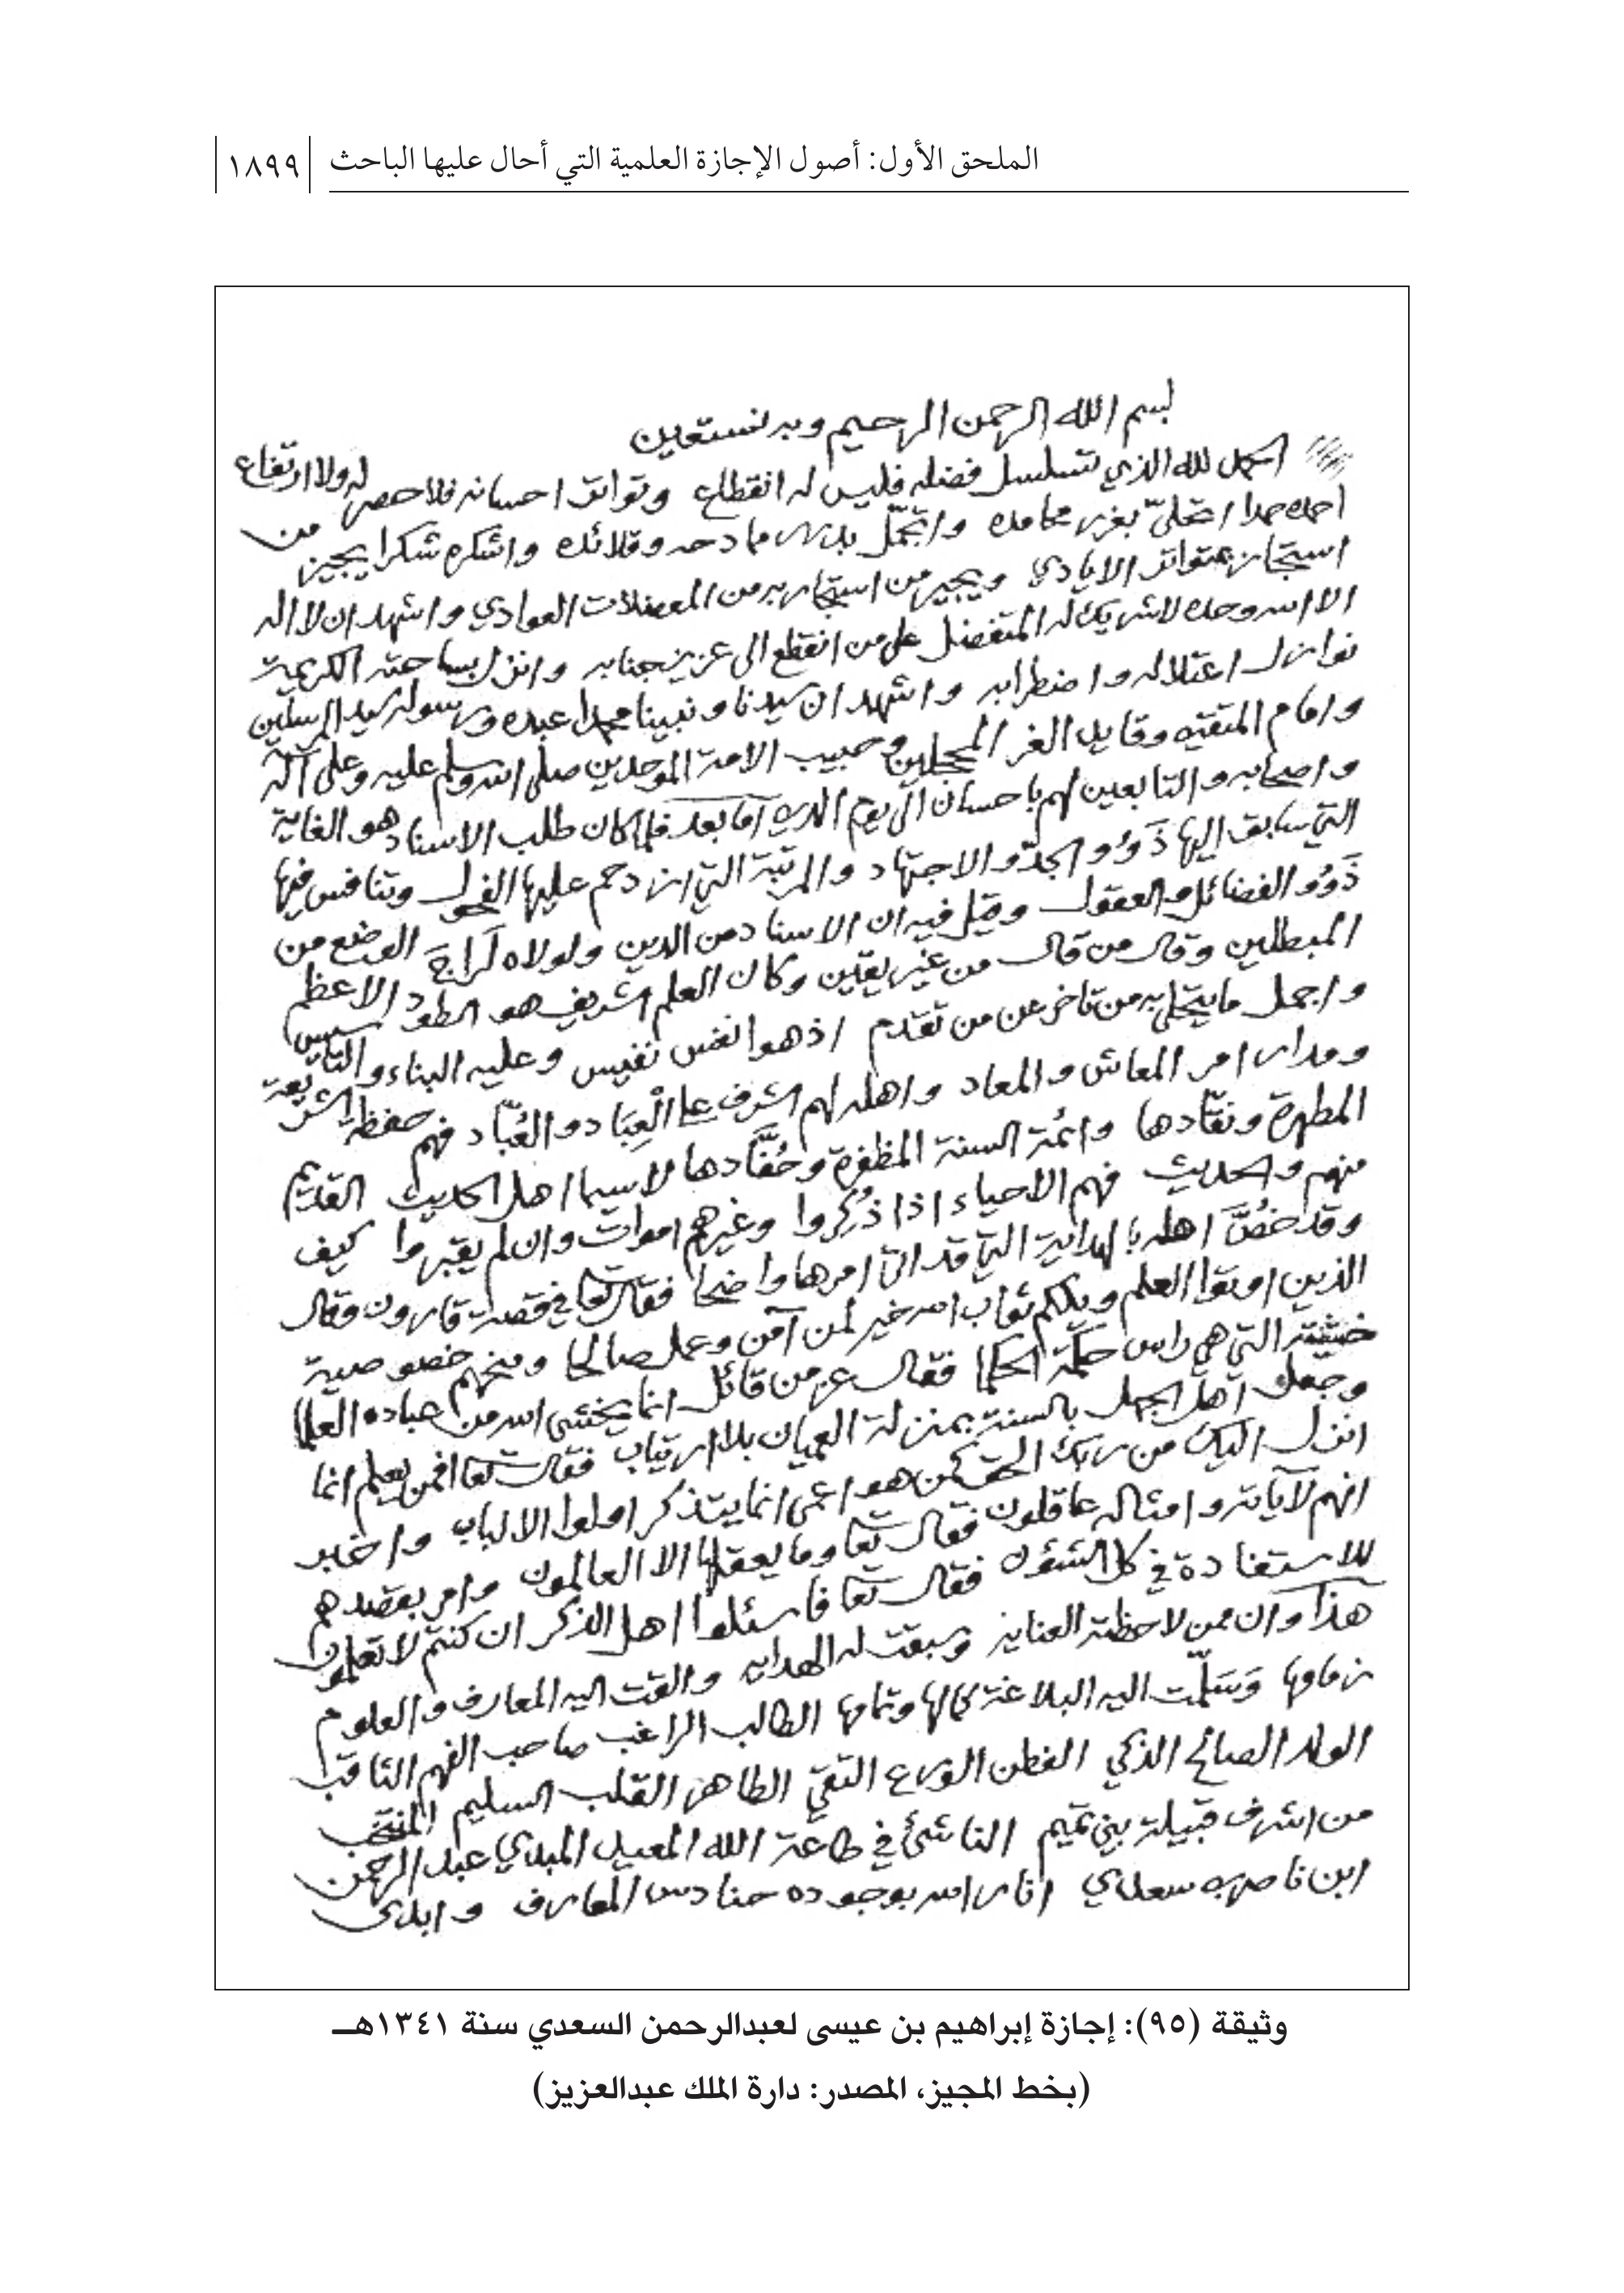 الملحق الأول: أصول الإجازة العلمية التي أحال عليها الباحث
١٨٩٩
بسم الله الرحمن الرحيم وبه نستعين
الحمد لله الذي تسلسل فضله فليس له انقطاع وتواتر احسانه فلا حصر له ولا ارتفاع
احمده حمدا اتحلى بغرر محامده واتجمّل بدرر مادحه وقلائده واشكره شكرا يجيز من
استجاز متواتر الايادي ويجير من استجار به من المعضلات العوادي واشهد ان لا اله
الا الله وحده لا شريك له المتفضل على من انقطع الى عزيز جنابه وانزل بساحته الكريمة
نوازل اعتلاله واضطرابه واشهد ان سيدنا ونبينا محمدا عبده ورسوله سيد المرسلين
وامام المتقين وقايد الغر المحجلين وحبيب الامة الموحدين صلى الله وسلم عليه وعلى آله
واصحابه والتابعين لهم باحسان الى يوم الدين اما بعد فلما كان طلب الاسناد هو الغاية
التي سابق اليها ذَوُو الجدّ والاجتهاد والمرتبة التي ازدحم عليها الفحول وتنافس فيها
ذَوُو الفضائل والعقول وقيل فيه ان الاسناد من الدين ولولاه لَرَاجَ الوضع من
المبطلين وقال من قال من غير يقين وكان العلم الشريف هو الطود الاعظم
واجمل ما يتحلى به من تاخر عن من تقدم اذ هو انفس نفيس وعليه البناء والتاسيس
ومدار امر المعاش والمعاد واهله لهم الشرف على الْعِبَاد والعُبّاد فهم حفظة الشريعة
المطهرة ونقّادها وائمة السنة المظفرة وحُفَّادها لاسيما اهل الحديث القديم
منهم والحديث فهم الاحياء اذا ذُكِروا وغيرهم اموات وان لم يقبروا كيف
وقد خصَّ اهله بالهداية التي قد اتى امرها واضحا فقال تعا في قصة قارون وقال
الذين اوتوا العلم ويلكم ثواب الله خير لمن آمن وعمل صالحا ومنحهم خصوصية
خشيته التي هي راس حكمة الحكما فقال عز من قائل انما يخشى الله من عباده العلما
وجعل اهل الجهل بالسنة بمنزلة العميان بلا ارتياب فقال تعا افمن يعلم انما
انزل اليك من ربك الحق كمن هو اعمى انما يتذكر اولوا الالباب واخبر
انهم لآياته وامثاله عاقلون فقال تعا وما يعقلها الا العالمون وامر بقصدهم
للاستفادة في كل الشؤن فقال تعا فاسئلوا اهل الذكر ان كنتم لا تعلمون
هذا وان ممن لاحظته العنايه وسبقت له الهدايه والقت اليه المعارف والعلوم
زمامها وَسَلّمت اليه البلاغة كمالها وتمامها الطالب الراغب صاحب الفهم الثاقب
الولد الصالح الذكي الفطن الورع التقيّ الطاهر القلب السليم المنتخب
من اشرف قبيلة بني تميم الناشئ في طاعة الله المعيد المبدي عبد الرحمن
ابن ناصر بن سعدي انار الله بوجوده حنادس المعارف وابدى
وثيقة (٩٥): إجازة إبراهيم بن عيسى لعبدالرحمن السعدي سنة ١٣٤١هـ
(بخط المجيز، المصدر: دارة الملك عبدالعزيز)